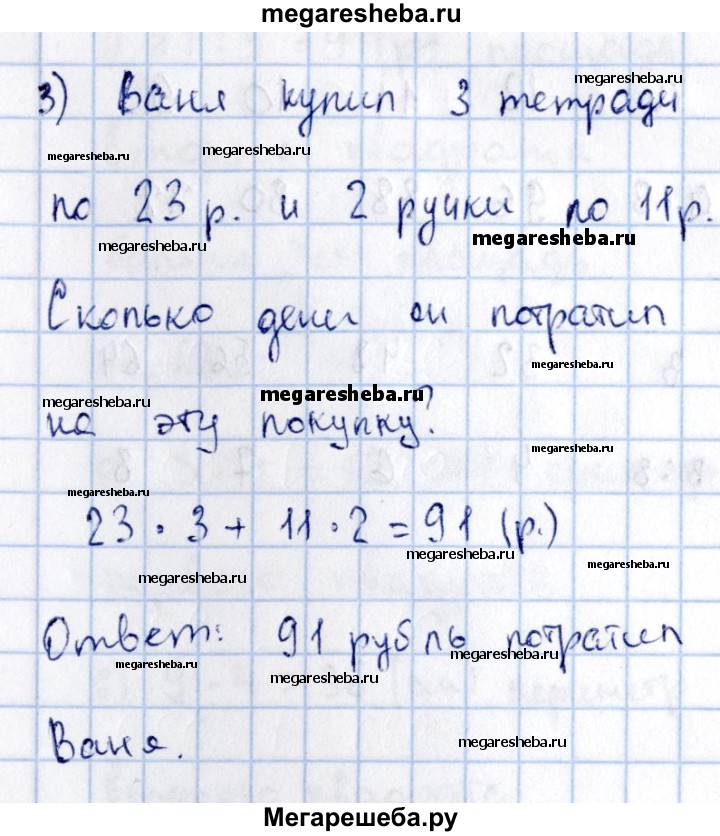 megaresheba.ru
3) Ваня купил 3 тетради
megaresheba.ru
megaresheba.ru
megaresheba.ru
по 23 р. и 2 ручки по 11 р.
megaresheba.ru
megaresheba.ru
Сколько денег он потратил
megaresheba.ru
megaresheba.ru
megaresheba.ru
на эту покупку?
megaresheba.ru
megaresheba.ru
23 · 3 + 11 · 2 = 91 (р.)
megaresheba.ru
megaresheba.ru
megaresheba.ru
Ответ: 91 рубль потратил
megaresheba.ru
megaresheba.ru
megaresheba.ru
Ваня.
megaresheba.ru
Мегарешеба.ру